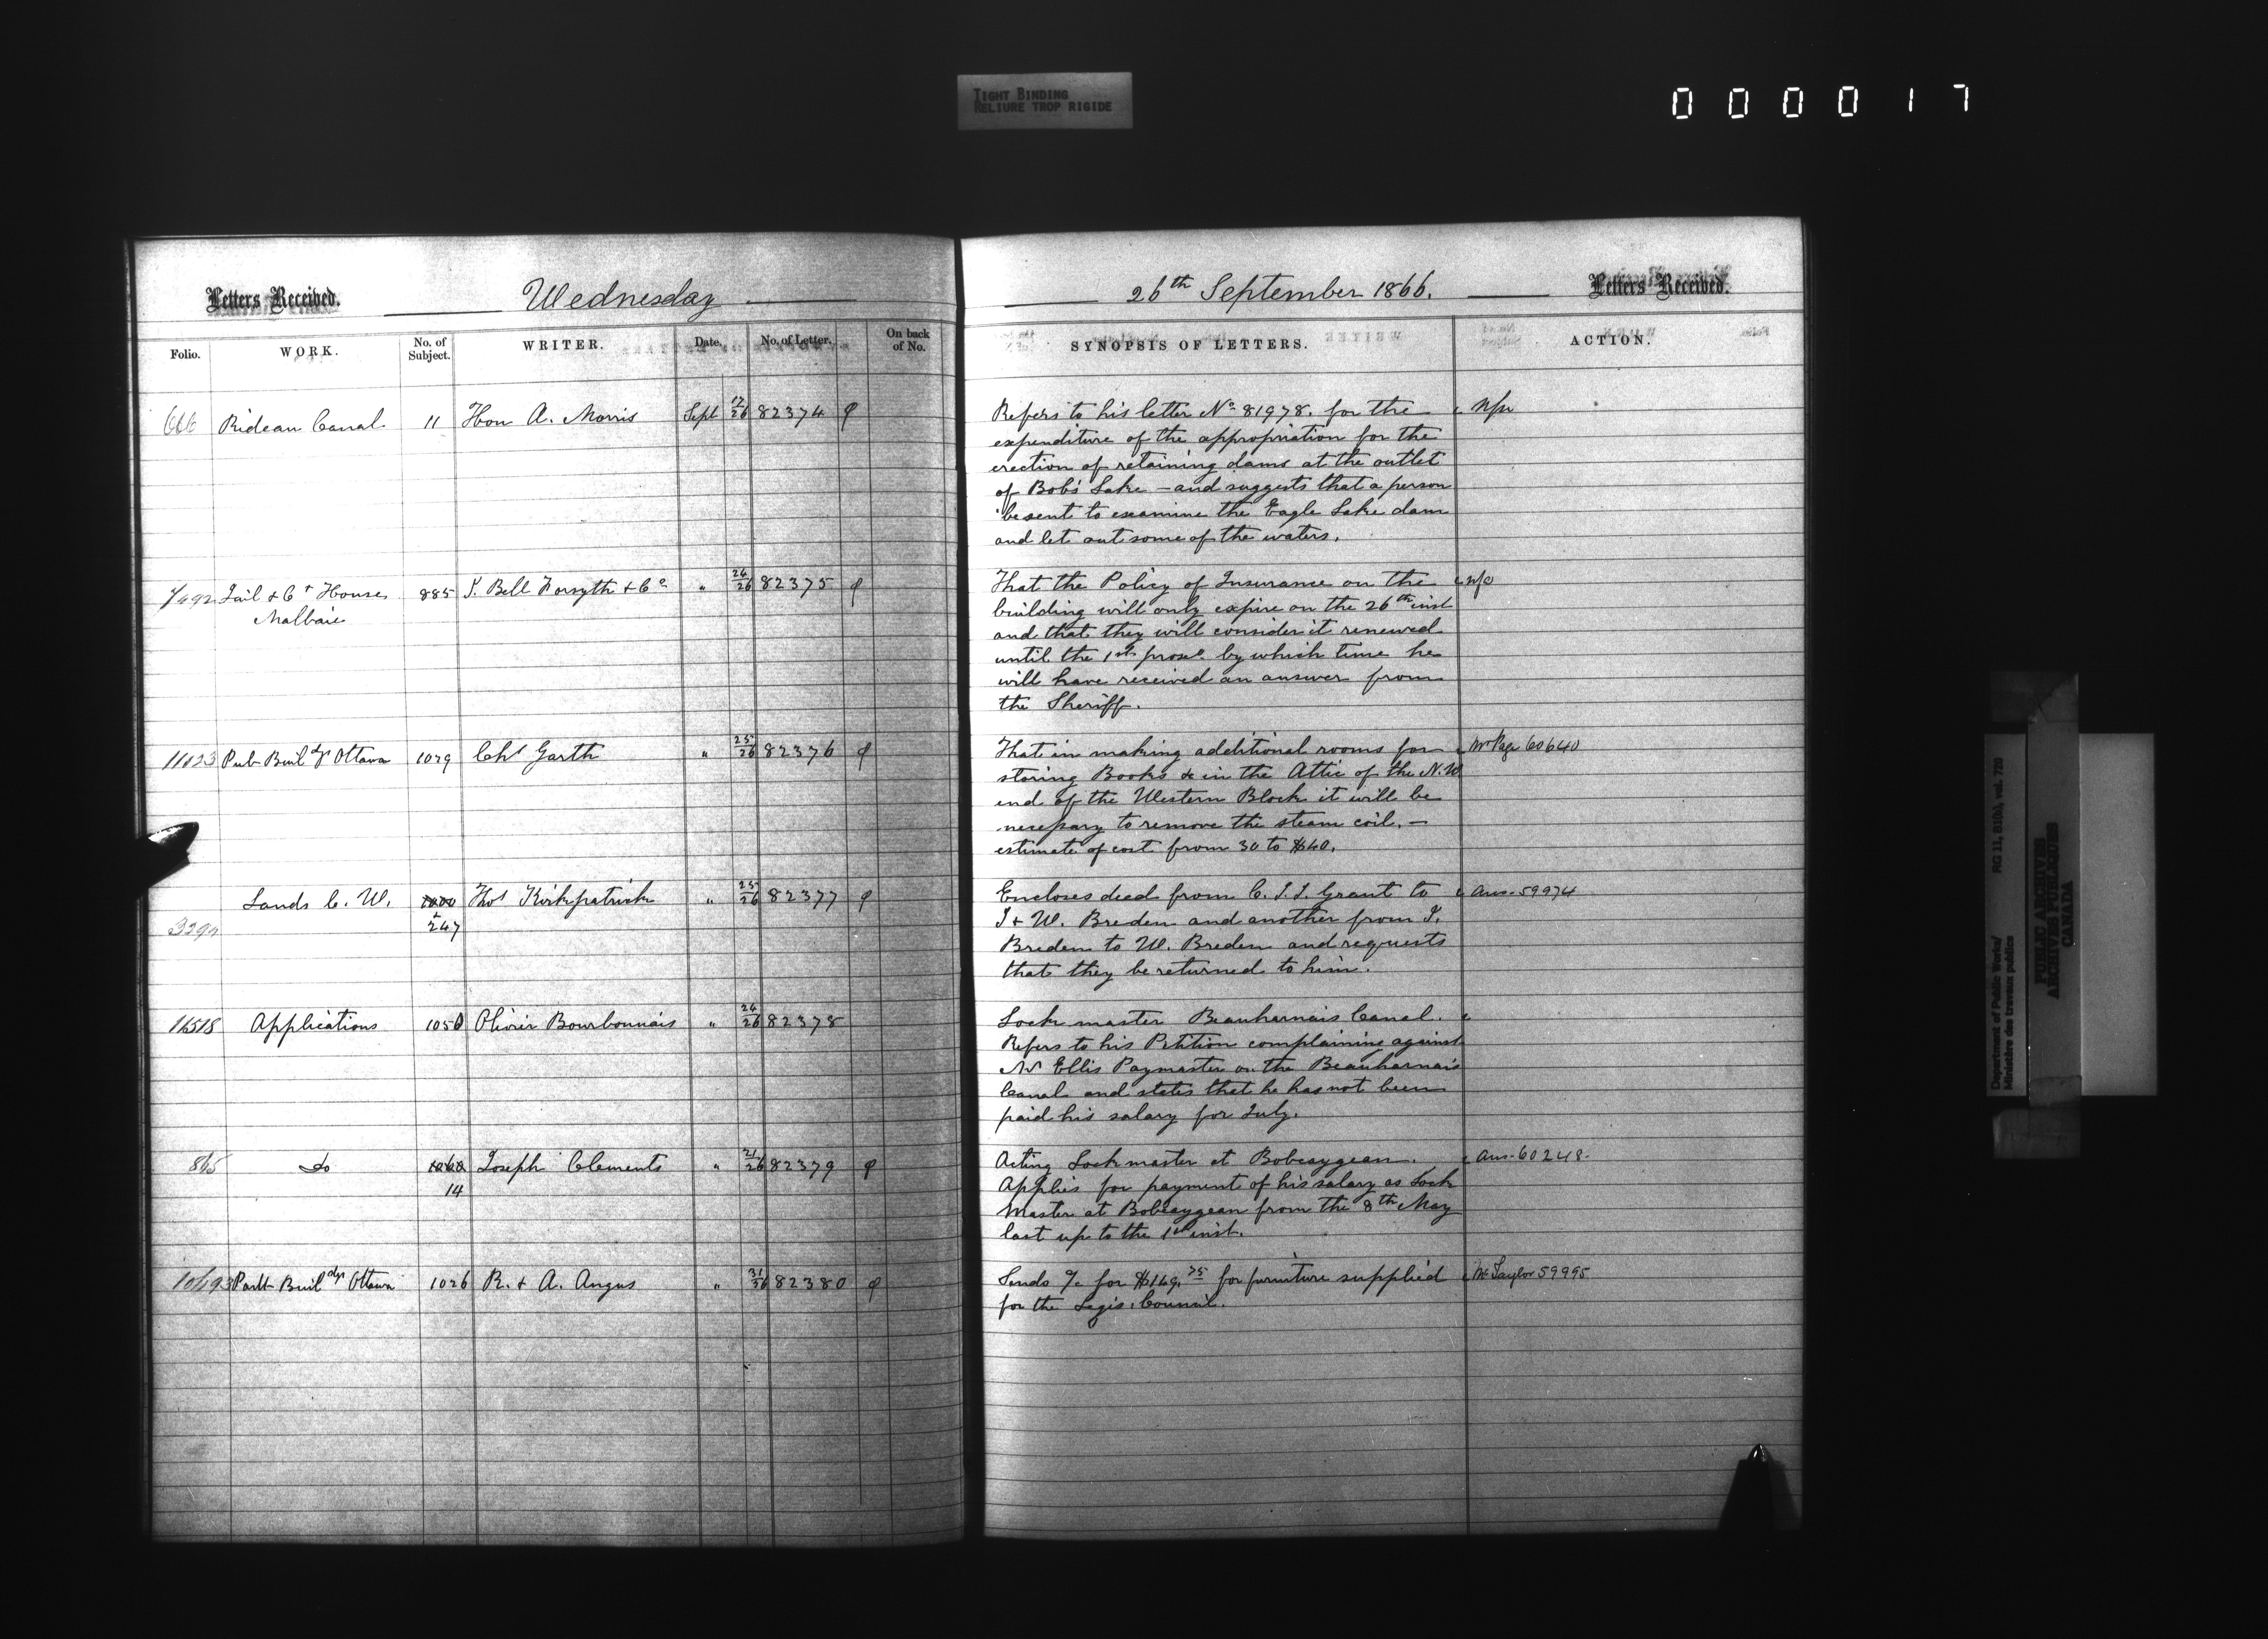 TIGHT BINDING
RELIURE TROP RIGIDE
0 0 0 0 1 7
Letters Received.
Wednesday
26th September 1866.
Letters Received.
Folio. WORK. No. of Subject. WRITER. Date. No. of Letter. On back of No.
SYNOPSIS OF LETTERS. ACTION.
666 Rideau Canal 11 Hon A. Morris Sept 17/26 82374
Refers to his letter No 81978. for the
expenditure of the appropriation for the
erection of retaining dams at the outlet
of Bob's Lake – and suggests that a person
be sent to examine the Eagle Lake dam
and let out some of the waters.
Jail & Ct House 885 J. Bell Forsyth & Co " 24/26 82375
Malbaie
That the Policy of Insurance on the
building will only expire on the 26th inst
and that they will consider it renewed
until the 1st proxo. by which time he
will have received an answer from
the Sheriff.
11023 Pub Buildgs Ottawa 1029 Chs Garth " 25/26 82376
That in making additional rooms for Mr Page 60640
storing Books &c in the Attic of the N.W.
end of the Western Block it will be
necessary to remove the steam coil. –
estimate of cost from 30 to $40.
Lands C. W. Thos Kirkpatrick " 25/26 82377
247
Encloses deed from C. J. I. Grant to Ans. 59974
J & W. Breden and another from J.
Breden to W. Breden and requests
that they be returned to him.
11518 Applications 1050 Olivier Bourbonnais " 24/26 82378
Lock master Beauharnais Canal.
Refers to his Petition complaining against
Mr Ellis Paymaster on the Beauharnais
Canal and states that he has not been
paid his salary for July.
865 do Joseph Clements " 21/26 82379
14
Acting Lockmaster at Bobcaygean. Ans. 60248.
Applies for payment of his salary as Lock
Master at Bobcaygean from the 8th May
last up to the 1st inst.
10693 Parlt Buildgs Ottawa 1026 R. & A. Angus " 82380
Sends a/c for $149.75 for furniture supplied Mr Taylor 59995
for the Legis. Council.
Department of Public Works/
Ministère des travaux publics
RG 11, B1(b), vol. 720
PUBLIC ARCHIVES
ARCHIVES PUBLIQUES
CANADA